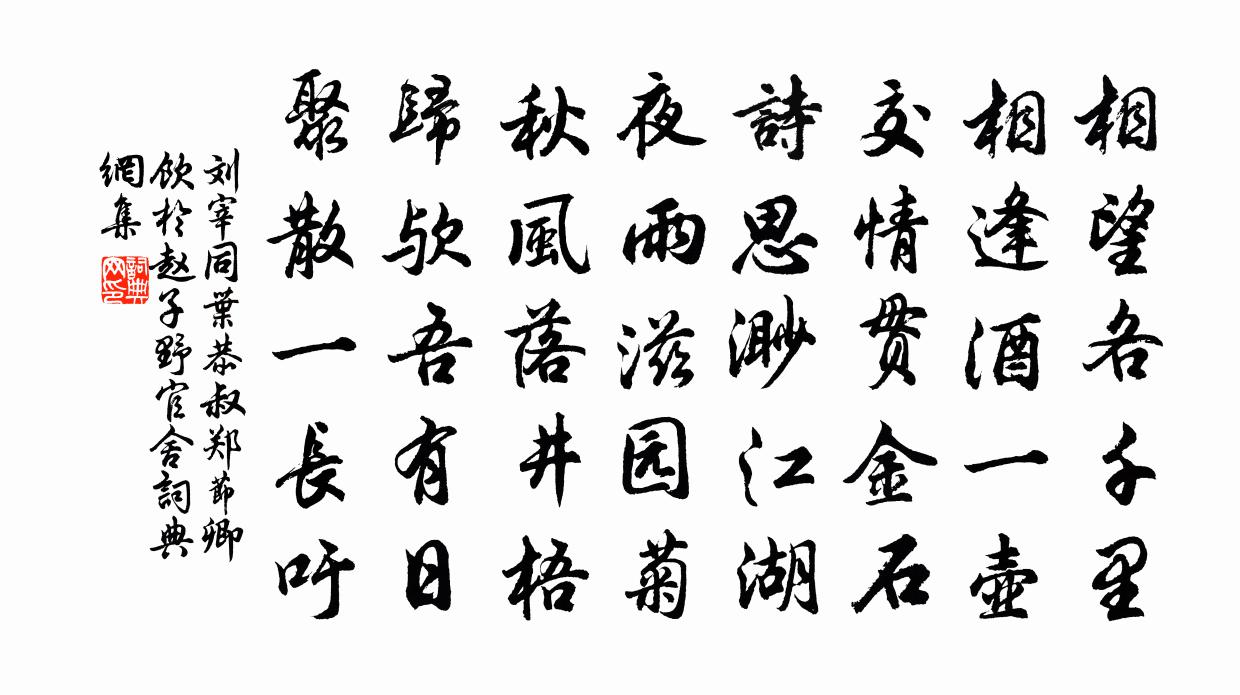 相望各千里
相逢酒一壺
交情贯金石
詩思渺江湖
夜雨滋园菊
秋風落井梧
歸欤吾有日
聚散一長吁
刘宰同葉恭叔郑节卿
飲於赵子野官舍詞典
網集
詞典
网印